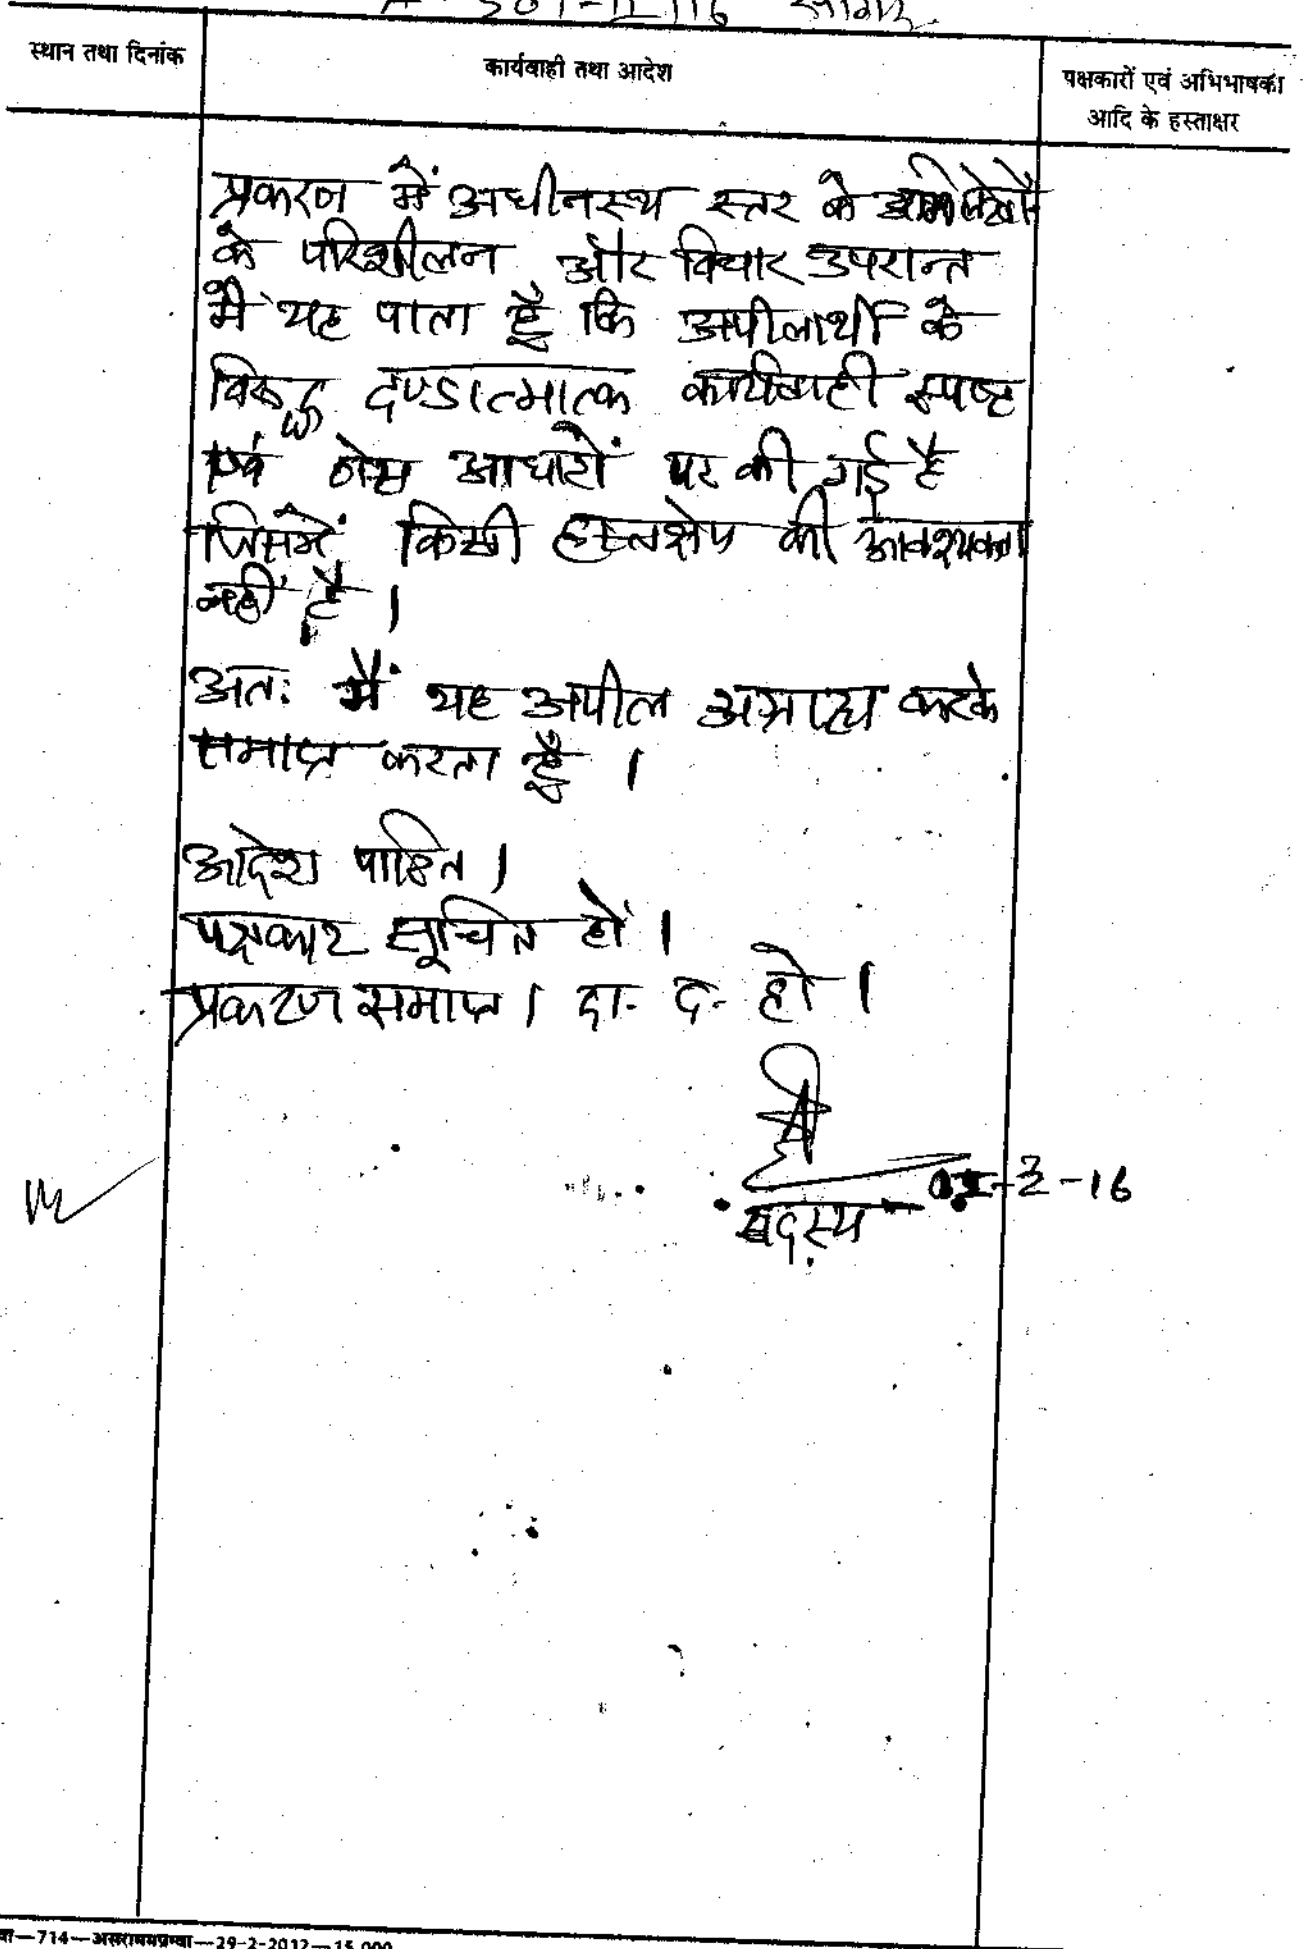 स्थान तथा दिनांक
कार्यवाही तथा आदेश
पक्षकारों एवं अभिभाषकों
आदि के हस्ताक्षर
प्रकरण में अधीनस्थ स्तर के अभिलेखों
के परिशीलन और विचार उपरान्त
मैं यह पाता हूँ कि अपीलार्थी के
विरूद्ध दण्डात्मात्क कार्यवाही स्पष्ट
एवं ठोस आधारों पर की गई है
जिसमें किसी हस्तक्षेप की आवश्यकता
नहीं है ।
अतः मैं यह अपील अग्राह्य करके
समाप्त करता हूँ ।
आदेश पारित ।
पक्षकार सूचित हों ।
प्रकरण समाप्त । दा. द. हो ।
सदस्य
-2-16
714—29-2-2012—15,000